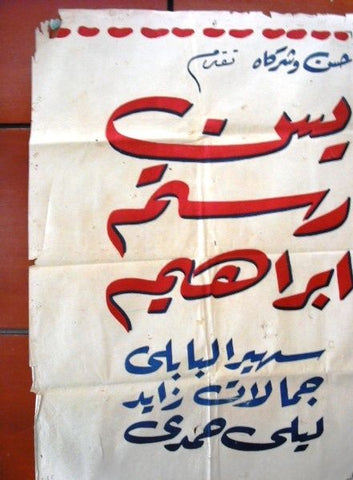 حسن وشركاه تقدم
يسن
رستم
ابراهيم
سهير البابلى
جمالات زايد
ليلى حمدى